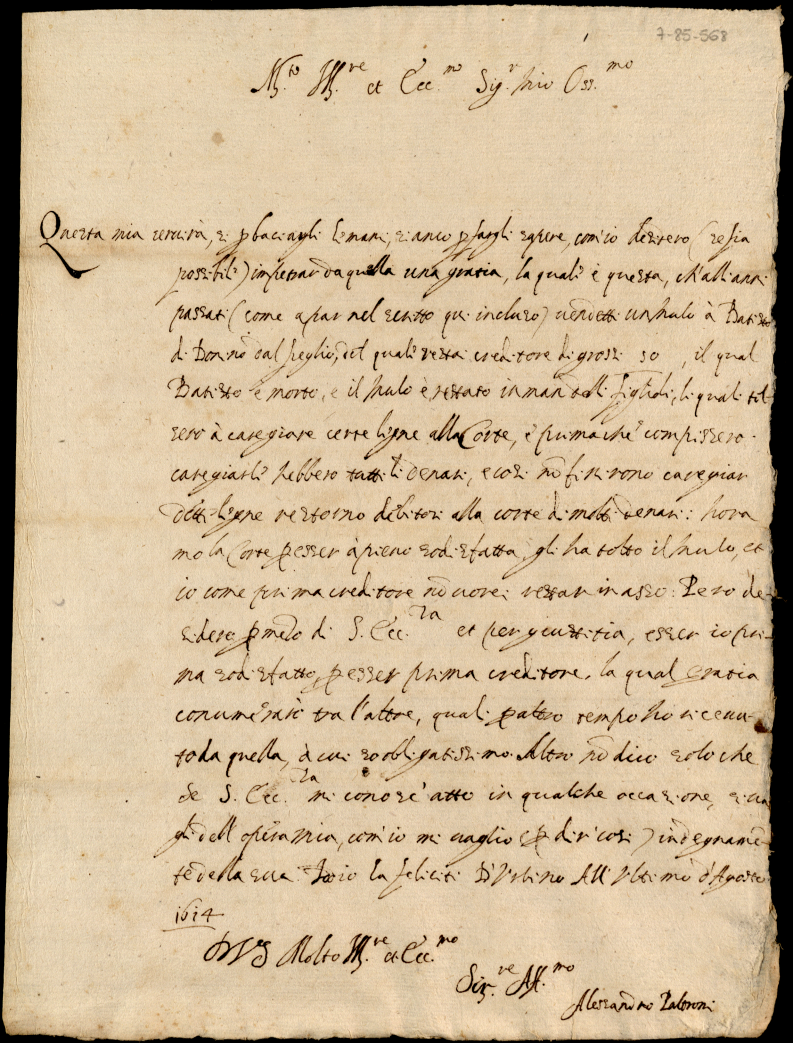 7-85-568
M.to Ill.re et Ecc.mo Sig.r mio Oss.mo
Questa mia servirà, sì p baciargli le mani, sì anco p fargli sapere, com'io desidero (se sia
possibile) impetrar da quella una gratia, la quale è questa, ch'alli anni
passati (come apar nel scritto qui incluso) vendetti un Mulo à Batisto
di Donino dal Peglio, del quale restai creditore di grossi 50, il qual
Batisto è morto, e il Mulo è restato in man delli figlioli, li quali tol-
sero à caregiare certe legne alla Corte, e prima che compissero
caregiarle hebbero tutti li denari, e così nõ finirono caregiar
dette legne restorno debitori alla corte di molti denari: hora
mo la Corte p esser à pieno sodisfatta, gli ha tolto il Mulo, et
io come prima creditore nõ vorei restar in asso: Però de-
sidero p mezo di S. Ecc.za et per giustitia, esser io pri-
ma sodisfatto, p esser prima creditore, la qual gratia
conumerarò tra l'altre, quali p altro tempo ho ricevu-
to da quella, à cui so obligatissimo. Altro nõ dico solo che
se S. Ecc.za mi conosce atto in qualche occasione, si va-
gli dell'opera mia, com'io mi vaglio (p dir così) indegnamẽ-
te della sua. Iddio la feliciti D'Urbino All'Ultimo d'Agosto
1614
D V S Molto Ill.re et Ecc.mo
Ser.re Aff.mo
Alessandro